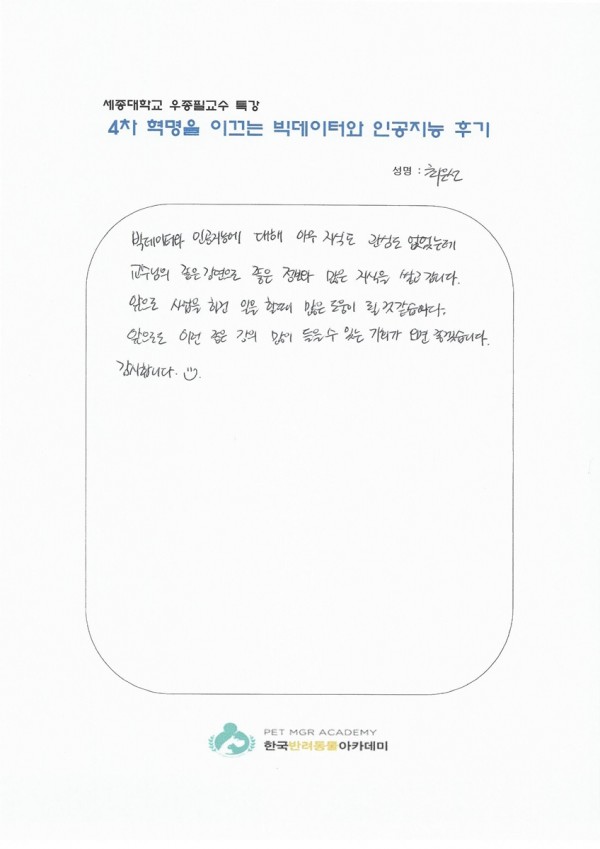 세종대학교 우종필교수 특강
4차 혁명을 이끄는 빅데이터와 인공지능 후기
성명 : 최윤선
빅데이터와 인공지능에 대해 아무 지식도 관심도 없었는데
교수님의 좋은 강연으로 좋은 정보와 많은 지식을 쌓고 갑니다.
앞으로 사업을 하던 일을 할때 많은 도움이 될것 같습니다.
앞으로도 이런 좋은 강의 많이 들을 수 있는 기회가 오면 좋겠습니다.
감사합니다.
PET MGR ACADEMY
한국반려동물아카데미